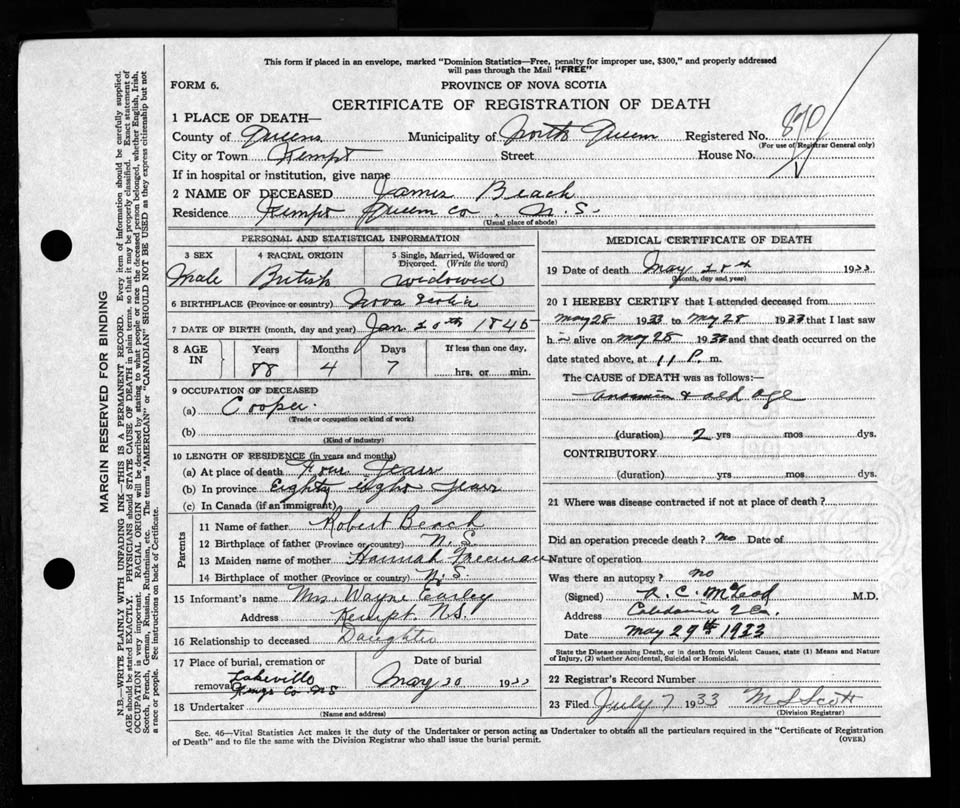 This form if placed in an envelope, marked "Dominion Statistics—Free, penalty for improper use, $300," and properly addressed
will pass through the Mail "FREE"
FORM 6.
PROVINCE OF NOVA SCOTIA
CERTIFICATE OF REGISTRATION OF DEATH
1 PLACE OF DEATH—
County of Queens Municipality of North Queen Registered No. 870
(For use of Registrar General only)
City or Town Kempt Street House No.
If in hospital or institution, give name
2 NAME OF DECEASED James Beach
Residence Kempt Queen Co. N.S.
(Usual place of abode)
PERSONAL AND STATISTICAL INFORMATION
3 SEX 4 RACIAL ORIGIN 5 Single, Married, Widowed or
Divorced. (Write the word)
Male British Widowed
6 BIRTHPLACE (Province or country) Nova Scotia
7 DATE OF BIRTH (month, day and year) Jan 20th 1845
8 AGE IN Years Months Days If less than one day,
88 4 7 hrs. or min.
9 OCCUPATION OF DECEASED
(a) Cooper.
(Trade or occupation or kind of work)
(b)
(Kind of industry)
10 LENGTH OF RESIDENCE (in years and months)
(a) At place of death Four Years
(b) In province Eighty eight years
(c) In Canada (if an immigrant)
Parents
11 Name of father Robert Beach
12 Birthplace of father (Province or country) N.S.
13 Maiden name of mother Hannah Freeman
14 Birthplace of mother (Province or country) N.S.
15 Informant's name Mrs. Wayne
Address Kempt. N.S.
16 Relationship to deceased Daughter
17 Place of burial, cremation or
removal Lakeville
Kings Co NS
Date of burial
May 30 1933
18 Undertaker
(Name and address)
MEDICAL CERTIFICATE OF DEATH
19 Date of death May 28th 1933
(Month, day and year)
20 I HEREBY CERTIFY that I attended deceased from
May 28 1933 to May 28 1933 that I last saw
h alive on May 28 1933 and that death occurred on the
date stated above, at 11 P. m.
The CAUSE of DEATH was as follows:—
& old age
(duration) 2 yrs mos dys.
CONTRIBUTORY
(duration) yrs mos dys.
21 Where was disease contracted if not at place of death?
Did an operation precede death? no Date of
Nature of operation
Was there an autopsy? no
(Signed) A. C. McLeod M.D.
Address Caledonia Q Co.
Date May 29th 1933
State the Disease causing Death, or in death from Violent Causes, state (1) Means and Nature
of Injury, (2) whether Accidental, Suicidal or Homicidal.
22 Registrar's Record Number
23 Filed July 7 1933 M L Scott
(Division Registrar)
Sec. 46—Vital Statistics Act makes it the duty of the Undertaker or person acting as Undertaker to obtain all the particulars required in the "Certificate of Registration
of Death" and to file the same with the Division Registrar who shall issue the burial permit.
(OVER)
MARGIN RESERVED FOR BINDING
N.B.—WRITE PLAINLY WITH UNFADING INK—THIS IS A PERMANENT RECORD. Every item of information should be carefully supplied.
AGE should be stated EXACTLY. PHYSICIANS should STATE CAUSE OF DEATH in plain terms, so that it may be properly classified. Exact statement of
OCCUPATION is very important. RACIAL ORIGIN will be described by stating to what people or race the deceased person belonged, whether English, Irish,
Scotch, French, German, Russian, Ruthenian, etc. The terms "AMERICAN" or "CANADIAN" SHOULD NOT BE USED as they express citizenship but not
a race or people. See instructions on back of Certificate.